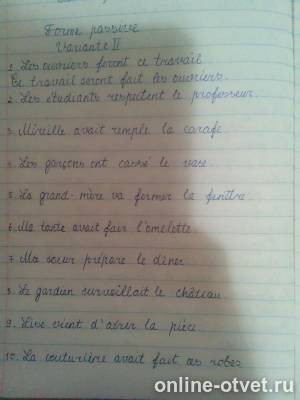 Forme passive
Variante II
1. Les ouvriers feront ce travail.
Ce travail seront fait les ouvriers.
2. Les étudiants respectent le professeur.
3. Mireille avait remple la carafe
4. Les garçons ont cassé le vase.
5. La grand-mère va fermer la fenêtre
6. Ma tante avait fair l'omelette
7. Ma sœur prépare le dîner
8. Le gardien surveillait le château
9. Lise vient d'aérer la pièce.
10. La couturière avait fait ces robes
online-otvet.ru